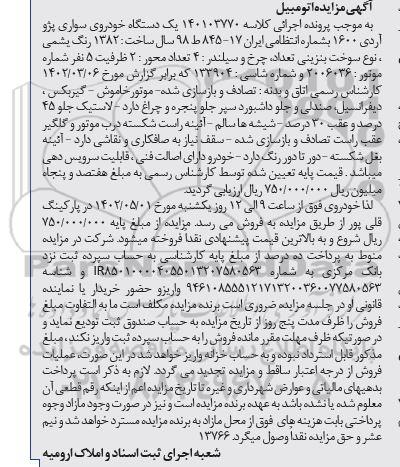 آگهی مزایده اتومبیل
به موجب پرونده اجرائی کلاسه ۱۴۰۱۰۳۷۷۰ یک دستگاه خودروی سواری پژو
آردی ۱۶۰۰ بشماره انتظامی ایران ۱۷-۸۴۵ ط ۹۸ سال ساخت : ۱۳۸۲ رنگ یشمی
، نوع سوخت بنزینی تعداد، چرخ و سیلندر : ۴ تعداد محور : ۲ ظرفیت ۵ نفر شماره
موتور : ۲۰۰۶۰۳۶ و شماره شاسی : ۱۳۲۹۰۴ که برابر گزارش مورخ ۱۴۰۲/۰۳/۰۶
کارشناس رسمی اتاق و بدنه : تصادف و بازسازی شده- موتور خاموش - گیربکس ،
دیفرانسیل، صندلی و جلو داشبورد سپر جلو پنجره و چراغ دارد - لاستیک جلو ۴۵
درصد و عقب ۳۰ درصد - شیشه ها سالم - آئینه راست شکسته درب موتور و گلگیر
عقب راست تصادف و بازسازی شده - سقف نیاز به صافکاری و نقاشی دارد - آئینه
بغل شکسته - دور تا دور رنگ دارد - خودرو دارای اصالت فنی ، قابلیت سرویس دهی
میباشد . قیمت پایه تعیین شده توسط کارشناس رسمی به مبلغ هفتصد و پنجاه
میلیون ریال ۷۵۰/۰۰۰/۰۰۰ ریال ارزیابی گردید.
لذا خودروی فوق از ساعت ۹ الی ۱۲ روز یکشنبه مورخ ۱۴۰۲/۰۵/۰۱ در پارکینگ
قلی پور از طریق مزایده به فروش می رسد. مزایده از مبلغ پایه ۷۵۰/۰۰۰/۰۰۰
ریال شروع و به بالاترین قیمت پیشنهادی نقدا فروخته میشود. شرکت در مزایده
منوط به پرداخت ده درصد از مبلغ پایه کارشناسی به حساب سپرده ثبت نزد
بانک مرکزی به شماره IR۸۵۰۱۰۰۰۰۴۰۵۵۰۱۳۲۰۷۵۸۰۵۶۳ و شناسه
۹۴۶۱۰۸۵۵۵۱۲۱۷۱۳۲۰۰۳۶۰۰۷۷۵۸۰۵۶۳ واریزو حضور خریدار یا نماینده
قانونی او در جلسه مزایده ضروری است برنده مزایده مکلف است ما به التفاوت مبلغ
فروش را ظرف مدت پنج روز از تاریخ مزایده به حساب صندوق ثبت تودیع نماید و
در صورتیکه ظرف مهلت مقرر مانده فروش را به حساب سپرده ثبت واریز نکند، مبلغ
مذکور قابل استرداد نبوده و به حساب خزانه واریز خواهد شد در این صورت، عملیات
فروش از درجه اعتبار ساقط و مزایده تجدید می گردد. لازم به ذکر است پرداخت
بدهیهای مالیاتی و عوارض شهرداری و غیره تا تاریخ مزایده اعم از اینکه رقم قطعی آن
معلوم شده یا نشده باشد به عهده برنده مزایده است و نیز در صورت وجود مازاد وجوه
پرداختی بابت هزینه های فوق از محل مازاد به برنده مزایده مسترد خواهد شد و نیم
عشر و حق مزایده نقدا وصول میگرد. ۱۳۷۶۶
شعبه اجرای ثبت اسناد و املاک ارومیه